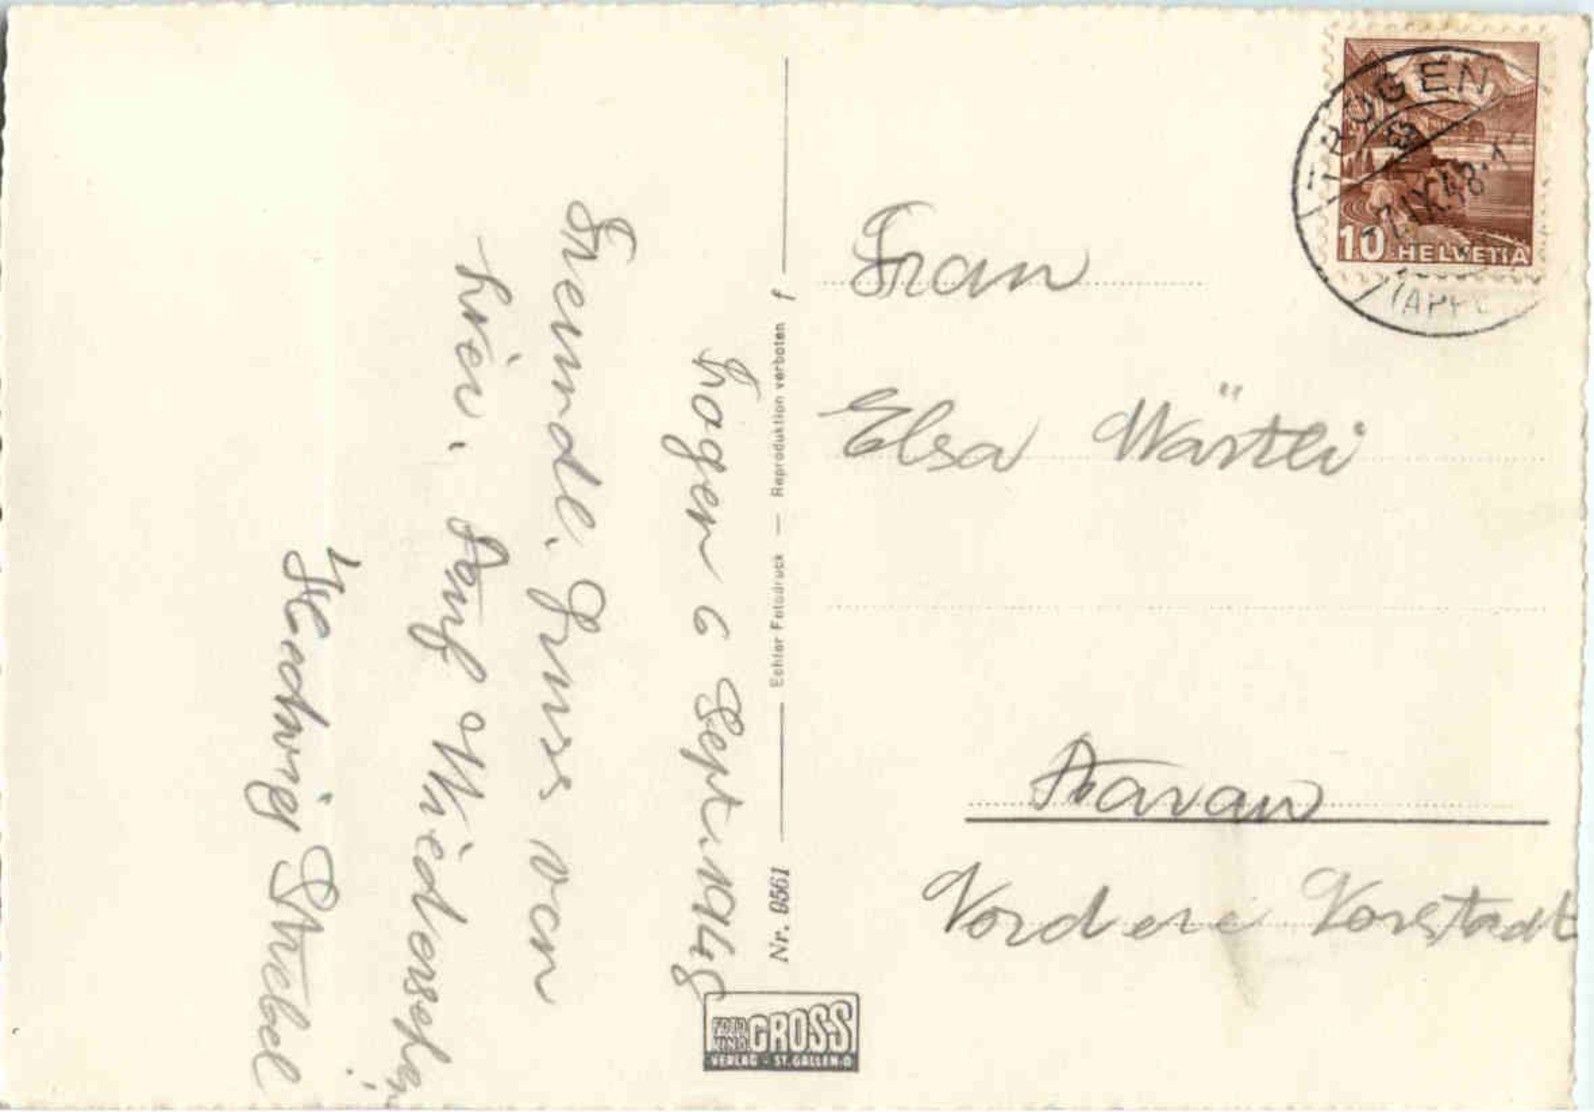 Trogen 6 Sept. 1948
Freundl. Gruss von
hier. Auf Wiedersehen!
Hedwig Strebel
Nr. 9561
Echter Fotodruck — Reproduktion verboten
FOTO UND GROSS
VERLAG - ST. GALLEN-O
TROGEN
7.IX.48
(APP
10 HELVETIA
Frau
Elsa Wärtli
Aarau
Vordere Vorstadt